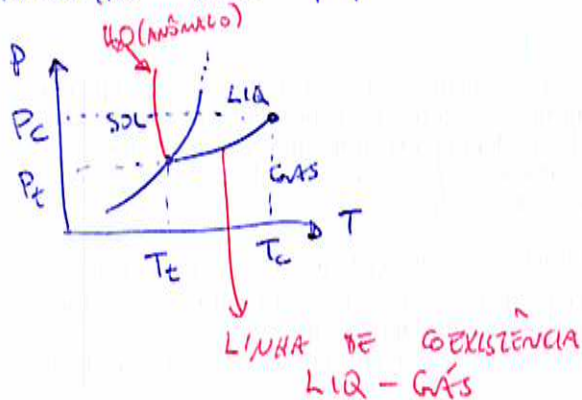 H₂O (ANÔMALO)
P
P_c
SOL
LIQ
P_t
GÁS
T_t
T_c
T
LINHA DE COEXISTÊNCIA
LIQ - GÁS